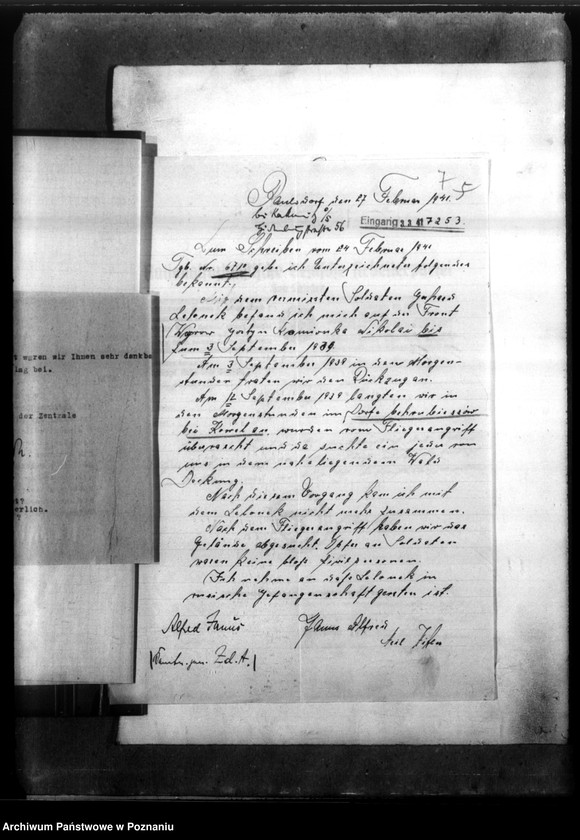 7
5
Paulsdorf den 27 Februar 1941.
bei Kattowitz O/S
Hindenburgstraße 56
Eingang 3.3.41 7253.
Zum Schreiben vom 24 Februar 1941
Tgb. Nr. gebe ich Unterzeichneter folgendes
bekannt.
Mit dem vermissten Soldaten Gerhard
Lelonek befand ich mich auf der Front
Kamionka Nikolai bis
zum 3 September 1939.
Am 3 September 1939 in den Morgen-
stunden traten wir den Rückzug an.
Am 17 September 1939 langten wir in
den Morgenstunden im Dorfe
bei Kowel an, wurden vom Fliegerangriff
überrascht und da suchte ein jeder von
uns in dem naheliegendem Wald
Deckung.
Nach diesem Vorgang kam ich mit
dem Lelonek nicht mehr zusammen.
Nach dem Fliegerangriff haben wir das
Gelände abgesucht. Opfer an Soldaten
waren keine bloß Zivilpersonen.
Ich nehme an daß Lelonek in
russische Gefangenschaft geraten ist.
Alfred Janus
Janus Alfred
Z.d.A.
t waren wir Ihnen sehr dankba
ag bei.
der Zentrale
erlich.
Archiwum Państwowe w Poznaniu